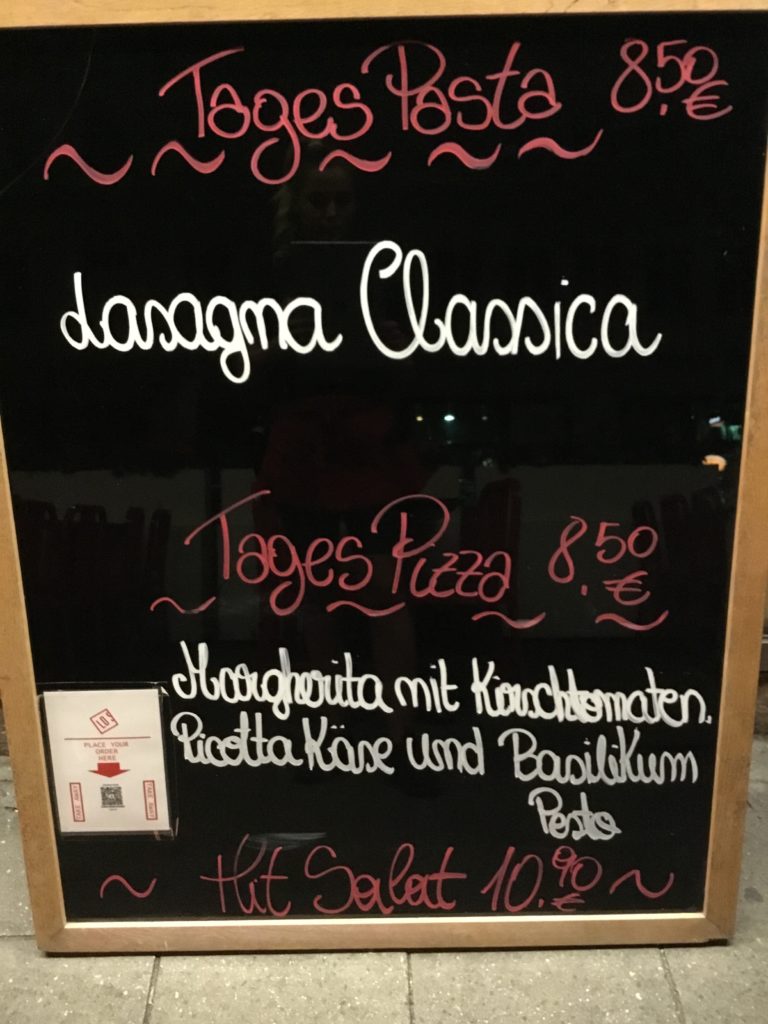 Tages Pasta 8.50 €
Lasagna Classica
Tages Pizza 8.50 €
Margherita mit Kirschtomaten.
Ricotta Käse und Basilikum
Pesto
Hit Salat 10.90 €
PLACE YOUR
ORDER
HERE
TAKE AWAY
TAKE AWAY